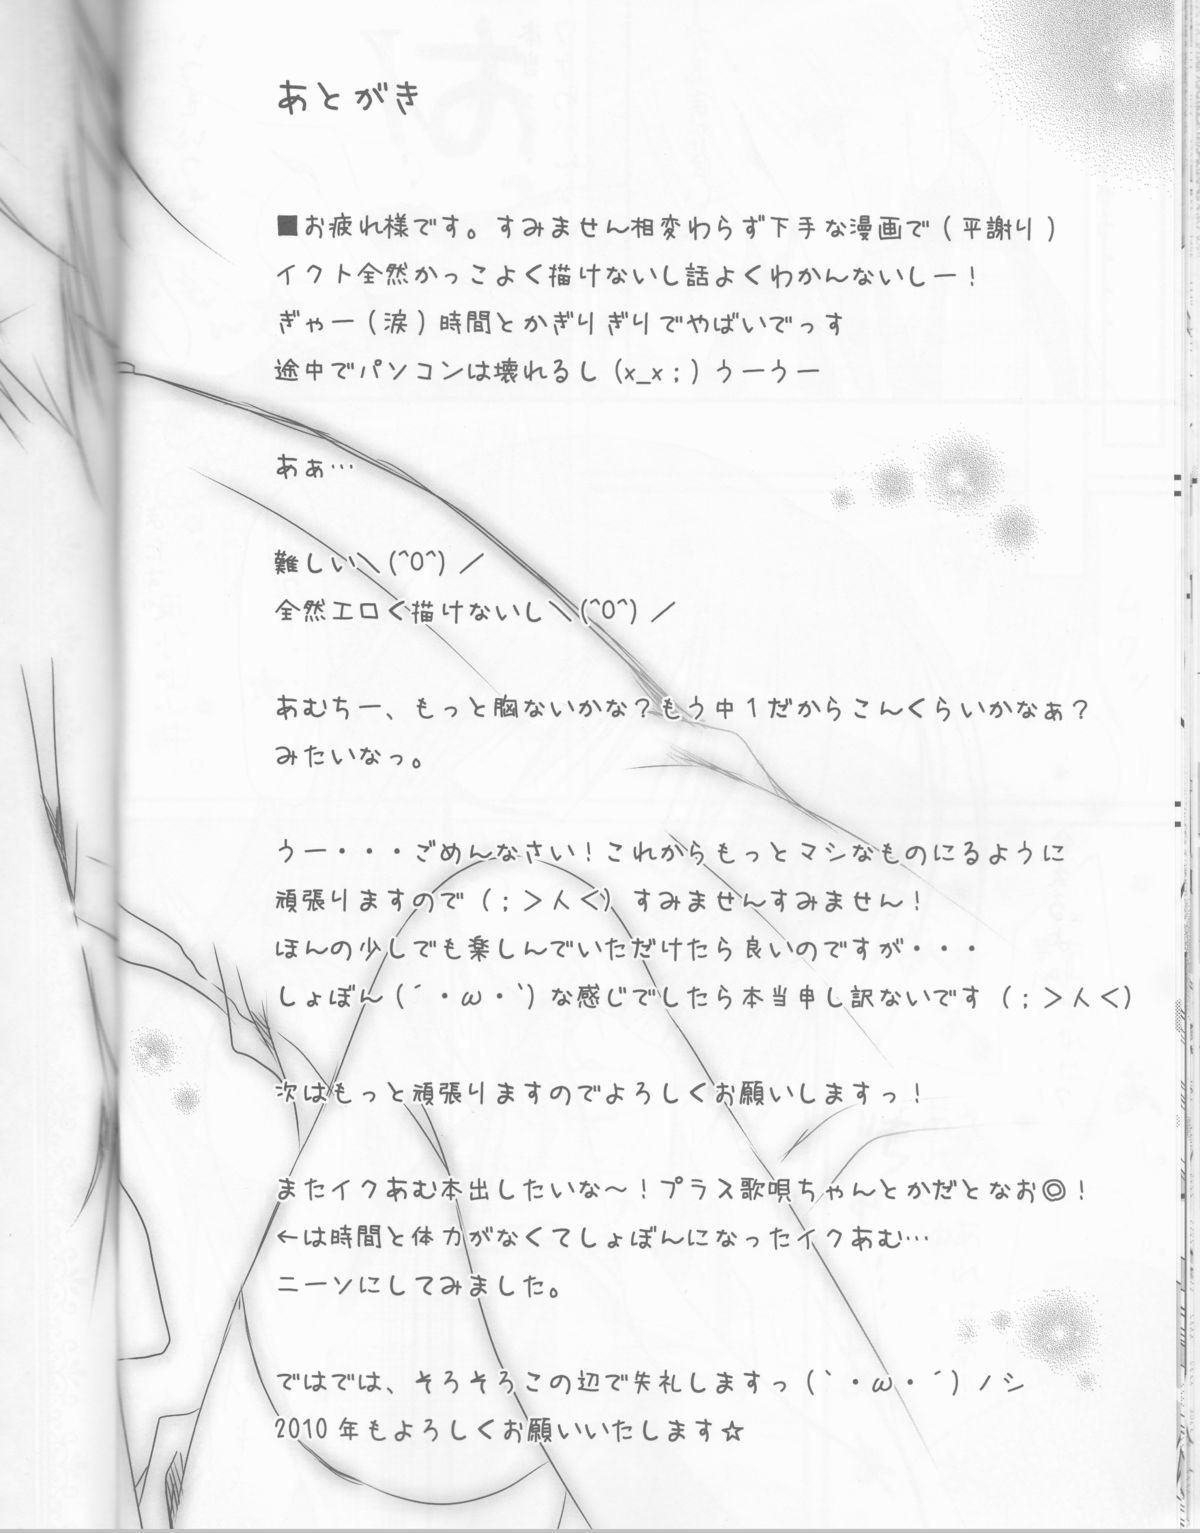 あとがき
■お疲れ様です。すみません相変わらず下手な漫画で(平謝り)
イクト全然かっこよく描けないし話よくわかんないしー！
ぎゃー(涙)時間とかぎりぎりでやばいでっす
途中でパソコンは壊れるし(x_x;)うーうー
あぁ…
難しい＼(^O^)／
全然エロく描けないし＼(^O^)／
あむちー、もっと胸ないかな？もう中1だからこんくらいかなぁ？
みたいなっ。
うー・・・ごめんなさい！これからもっとマシなものにるように
頑張りますので(；＞人＜)すみませんすみません！
ほんの少しでも楽しんでいただけたら良いのですが・・・
しょぼん(´・ω・`)な感じでしたら本当申し訳ないです(；＞人＜)
次はもっと頑張りますのでよろしくお願いしますっ！
またイクあむ本出したいな～！プラス歌唄ちゃんとかだとなお◎！
←は時間と体力がなくてしょぼんになったイクあむ…
ニーソにしてみました。
ではでは、そろそろこの辺で失礼しますっ(`・ω・´)ノシ
2010年もよろしくお願いいたします☆